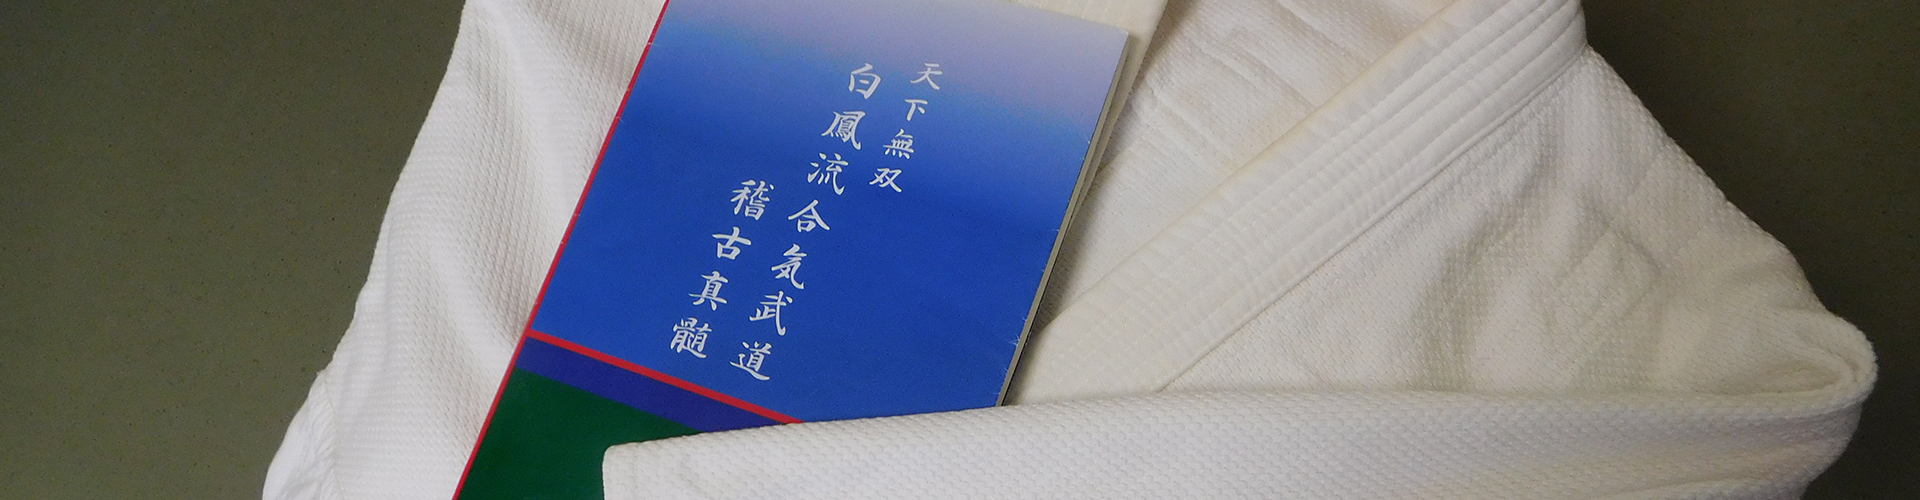 天下無双
白鳳流合気武道
稽古真髄